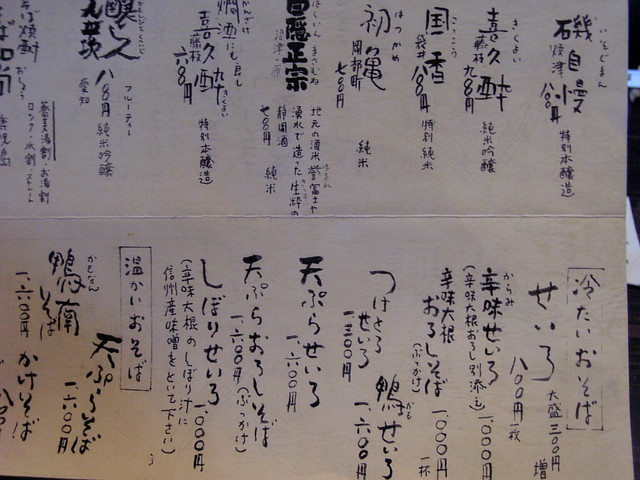 いそじまん
磯自慢
焼津
特別本醸造
きくよい
喜久酔
藤枝
純米吟醸
こっこう
国香
袋井
特別純米
はつかめ
初亀
岡部町
七〇〇円
純米
はくいん まさむね
白隠正宗
沼津・原
地元の酒米誉富士や
湧水で造った生粋の
静岡酒
純米
かんざけ
燗酒にも良し
喜久酔
きくよい
藤枝
六〇〇円
特別本醸造
醸し人九平次
愛知
八〇〇円
フルーティー
純米吟醸
そば焼酎
蕎麦湯割・お湯割
ロック・水割・ストレート
冷たいおそば
せいろ
八〇〇円 一枚
大盛三〇〇円増
からみ
辛味せいろ 一、〇〇〇円
(辛味大根おろし別添え)
辛味大根
おろしそば 一、〇〇〇円
(ぶっかけ)
一杯
つけとろ
せいろ 一、三〇〇円
かも
鴨せいろ 一、六〇〇円
天ぷらせいろ
一、六〇〇円
天ぷらおろしそば
一、六〇〇円(ぶっかけ)
しぼりせいろ 一、〇〇〇円
(辛味大根のしぼり汁に
信州産味噌をといて下さい)
温かいおそば
天ぷらそば
一、六〇〇円
かもなん
鴨南そば
一、六〇〇円
かけそば